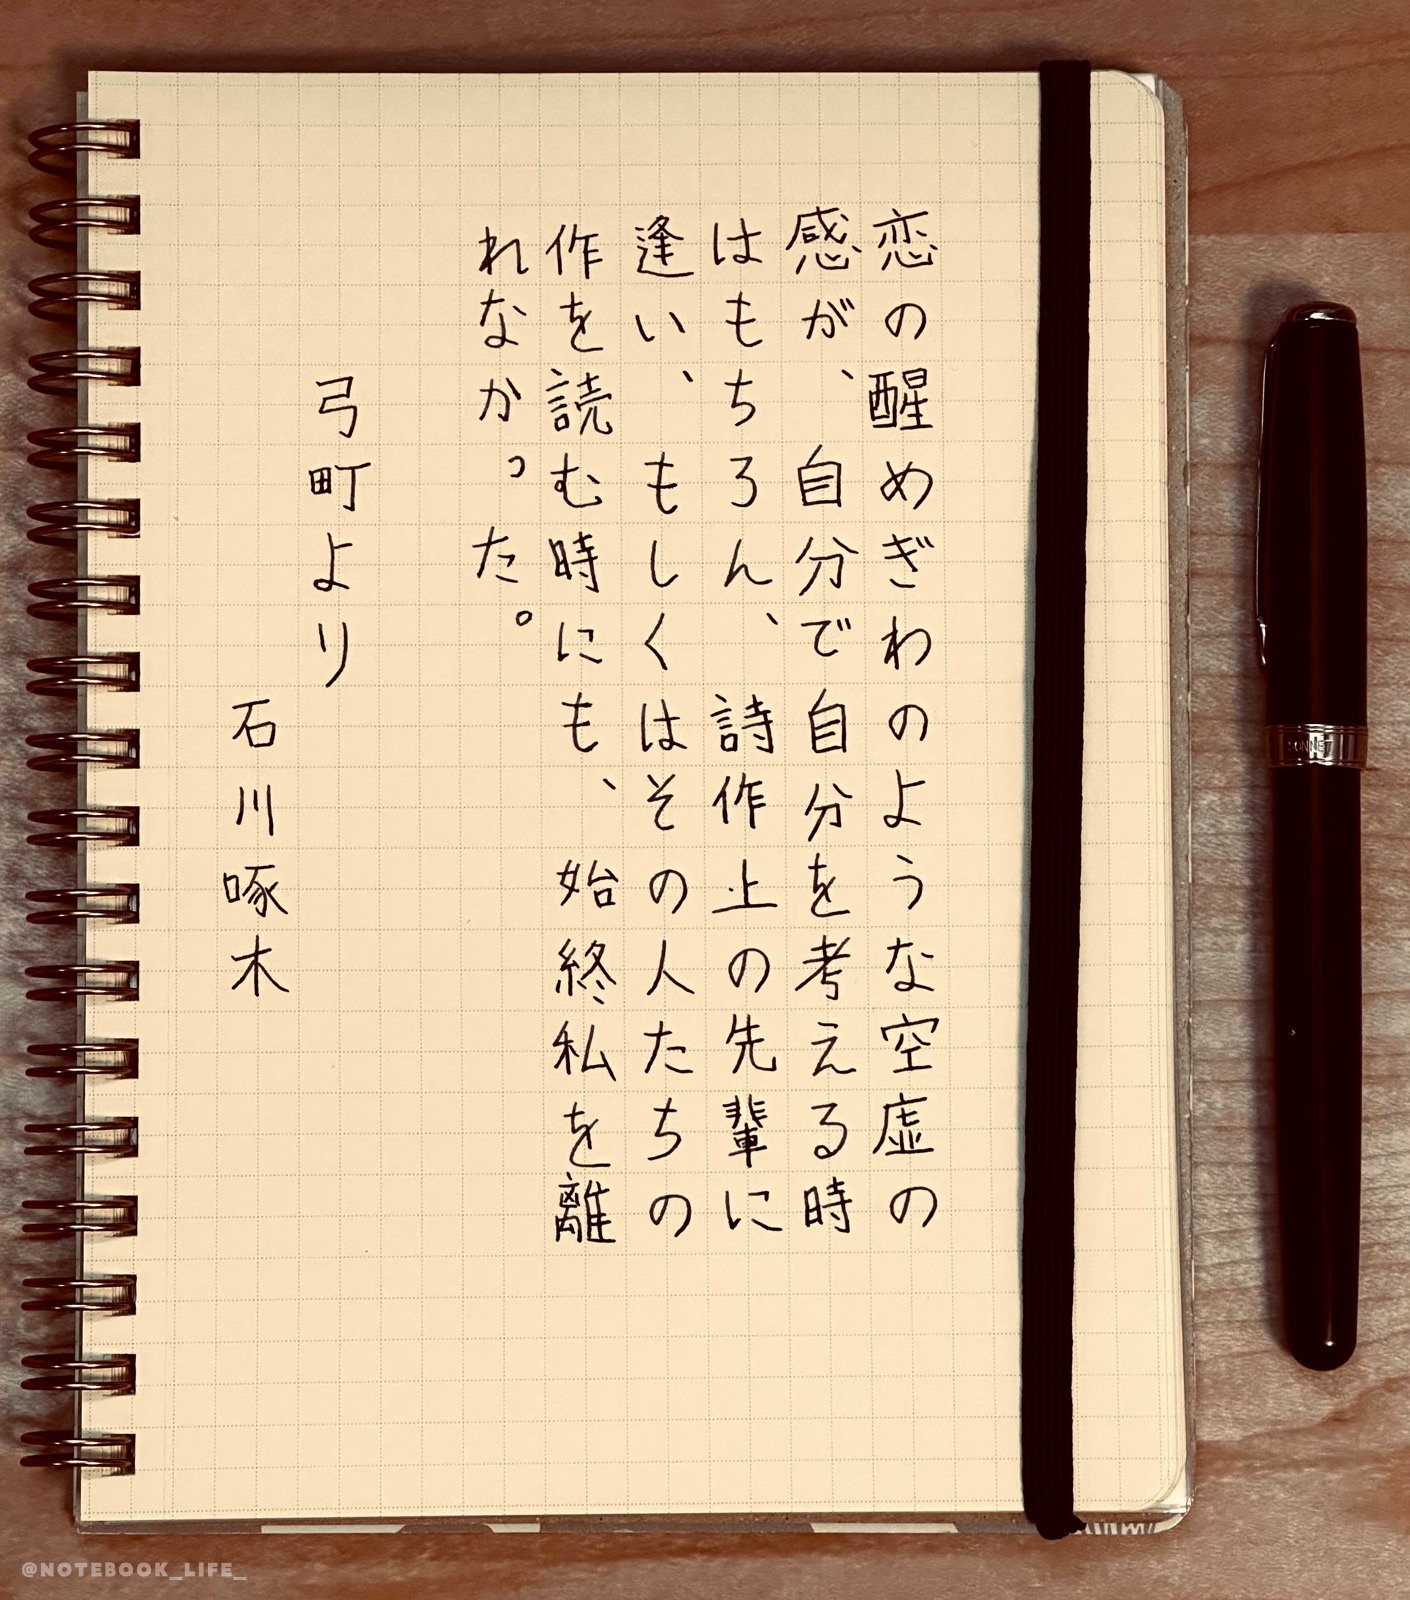 恋の醒めぎわのような空虚の
感が、自分で自分を考える時
はもちろん、詩作上の先輩に
逢い、もしくはその人たちの
作を読む時にも、始終私を離
れなかった。
弓町より
石川啄木
SONNET
@NOTEBOOK_LIFE_